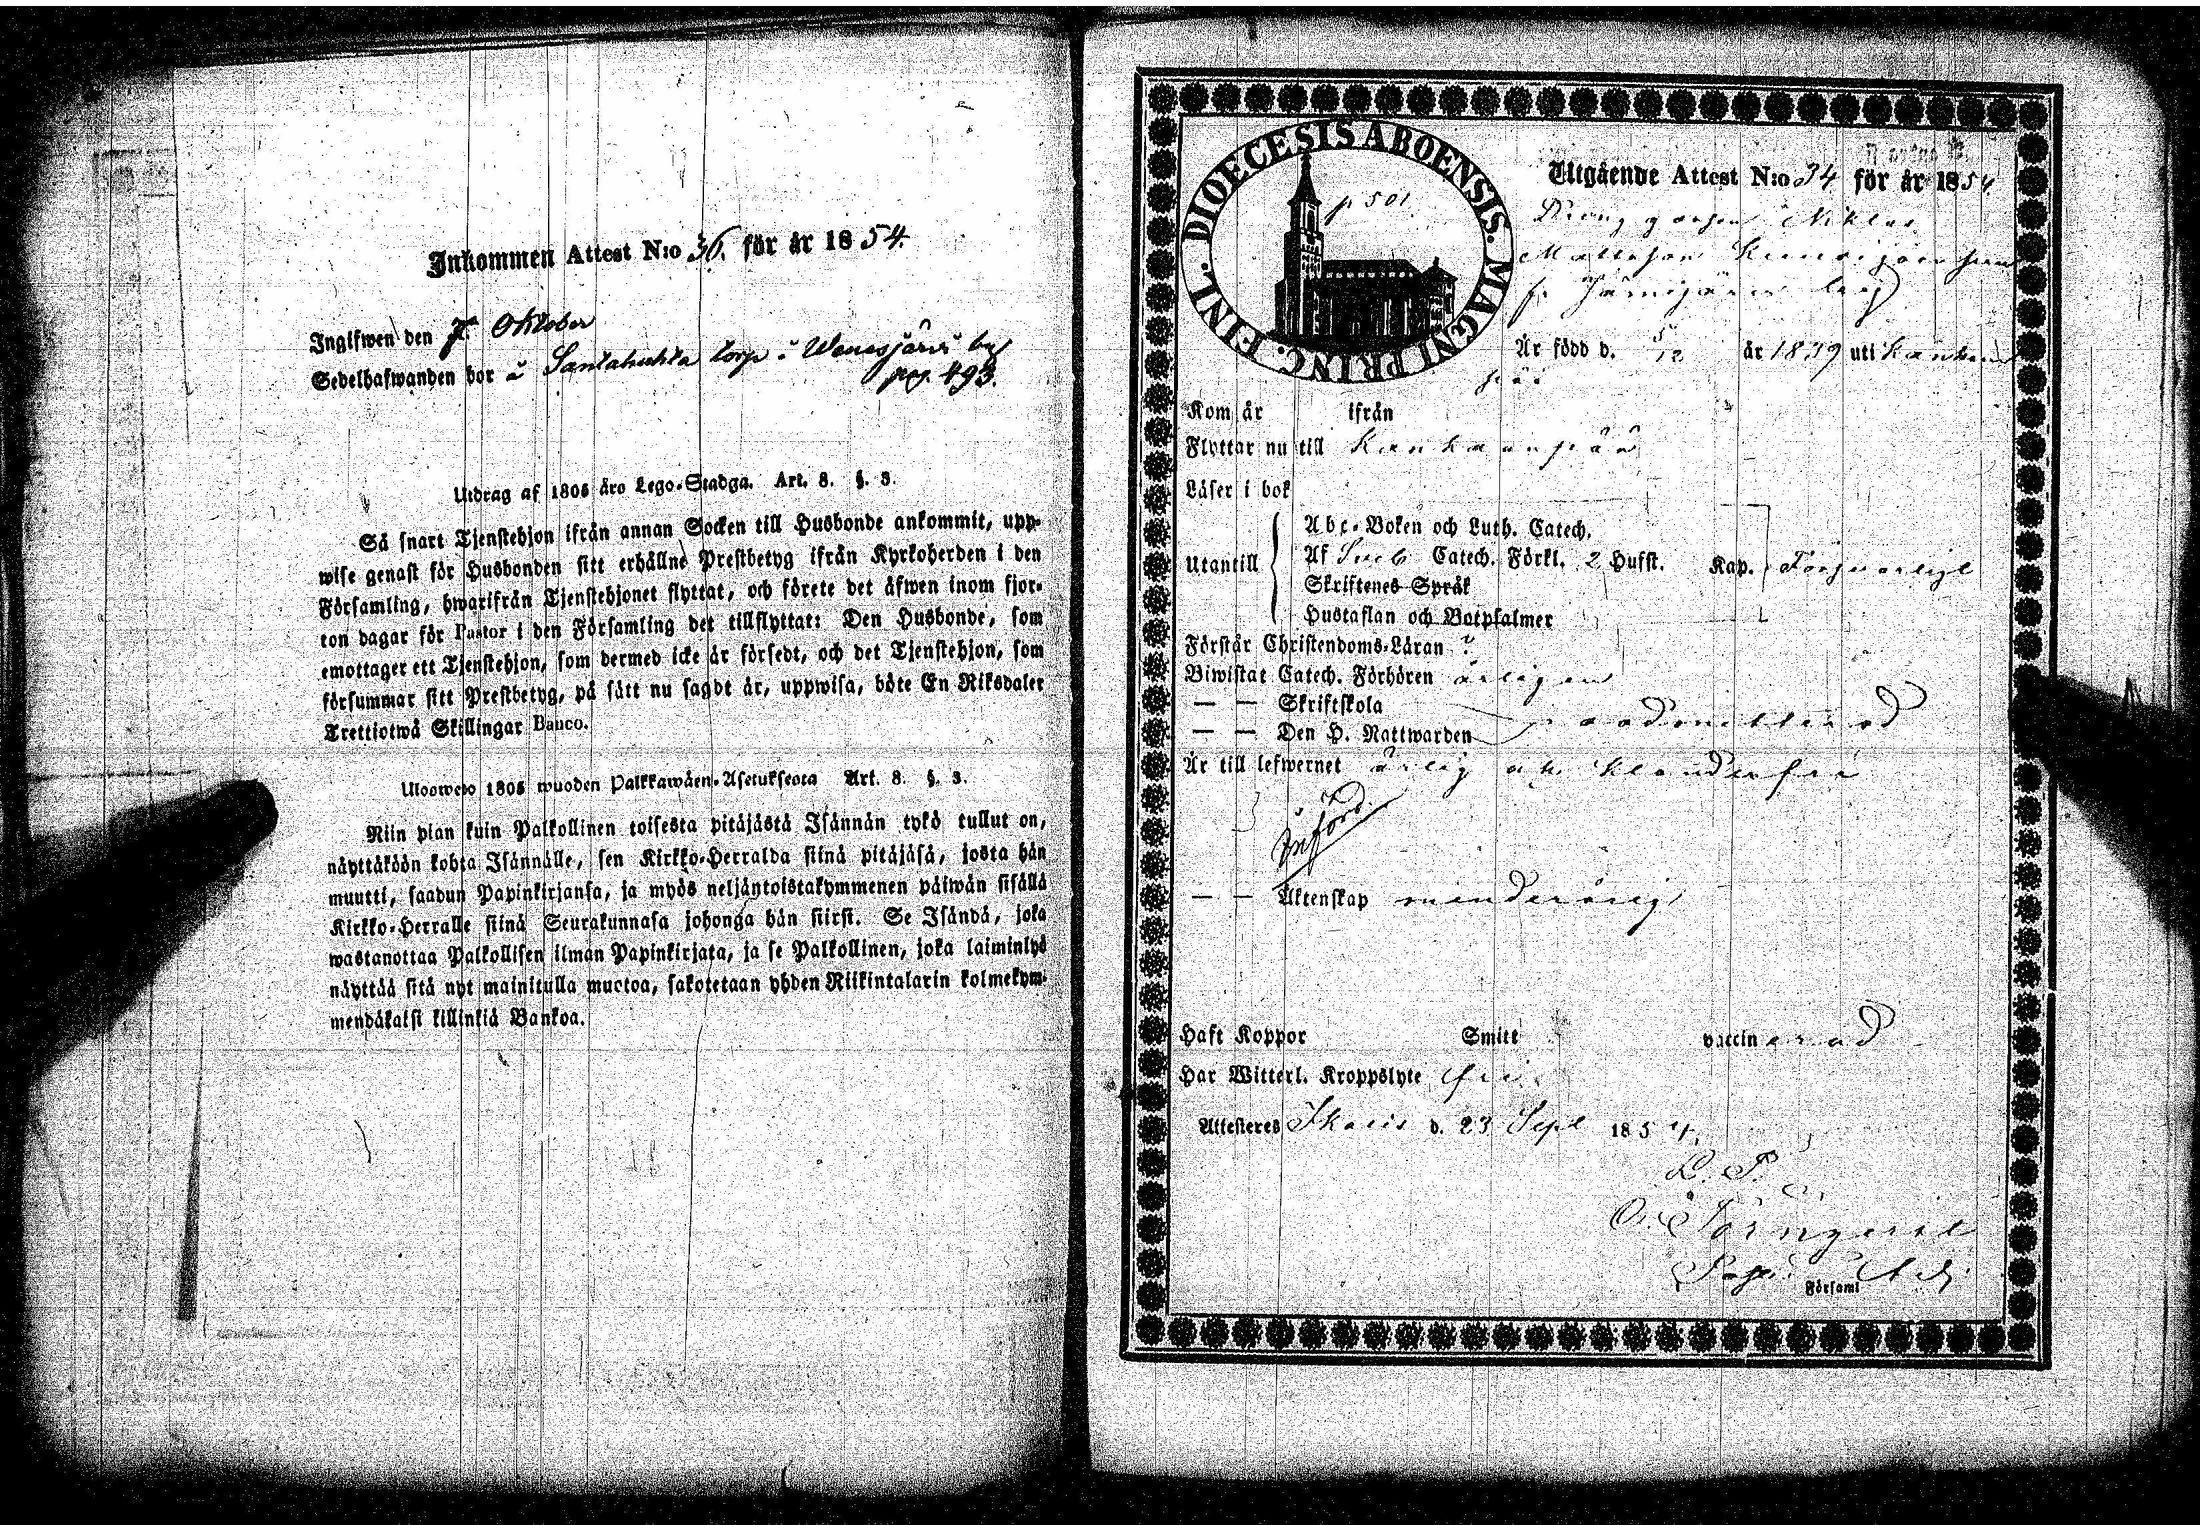 Inkommen Attest N:o 36. för år 1854.
Ingifwen den 7. Oktober
Sedelhafwanden bor å Santahuhta torp i Wenesjärvi by
pag. 493.
Utdrag af 1805 års Lego-Stadga. Art. 8. §. 3.
Så snart Tjenstehjon ifrån annan Socken till Husbonde ankommit, upp-
wise genast för Husbonden sitt erhållne Prestbetyg ifrån Kyrkoherden i den
Församling, hwarifrån Tjenstehjonet flyttat, och förete det äfwen inom fjor-
ton dagar för Pastor i den Församling det tillflyttat: Den Husbonde, som
emottager ett Tjenstehjon, som dermed icke är försedt, och det Tjenstehjon, som
försummar sitt Prestbetyg, på sätt nu sagdt är, uppwisa, böte En Riksdaler
Trettiotwå Skillingar Banco.
Ulosweto 1805 wuoden Palkkawäen-Asetuksesta Art. 8. §. 3.
Niin pian kuin Palkollinen toisesta pitäjästä Isännän tykö tullut on,
näyttäköön kohta Isännälle, sen Kirkko-Herralda siinä pitäjäsä, josta hän
muutti, saadun Papinkirjansa, ja myös neljäntoistakymmenen päiwän sisällä
Kirkko-Herralle siinä Seurakunnasa johonga hän siirsi. Se Isändä, joka
wastanottaa Palkollisen ilman Papinkirjata, ja se Palkollinen, joka laiminlyö
näyttää sitä nyt mainitulla muotoa, sakotetaan yhden Riikintalarin kolmekym-
mendäkaksi killinkiä Bankoa.
DIOECESIS ABOENSIS. MAGNI PRINC. FINL.
p 501.
Utgående Attest N:o 34 för år 1854
Niklas
Mattsson
Är född d. 5/12 år 1839 uti Kankaan
pää
Kom år ifrån
Flyttar nu till Kankaanpää
Läser i bok
Utantill
Abc-Boken och Luth. Catech.
Af Sveb Catech. Förkl. 2 Hufst. Kap. Försvarligt
Skriftenes Språk
Hustaflan och Botpsalmer
Förstår Christendoms-Läran ?
Biwistat Catech. Förhören årligen
— — Skriftskola
— — Den H. Nattwarden oadmitterad
Är till lefwernet ärlig och klanderfri
Införd
— — Äktenskap minderårig
Haft Koppor Smitt vaccinerad
Har Witterl. Kroppslyte fri
Attesteres Ikalis d. 23 Sept 1854.
Törnqvist
Församl